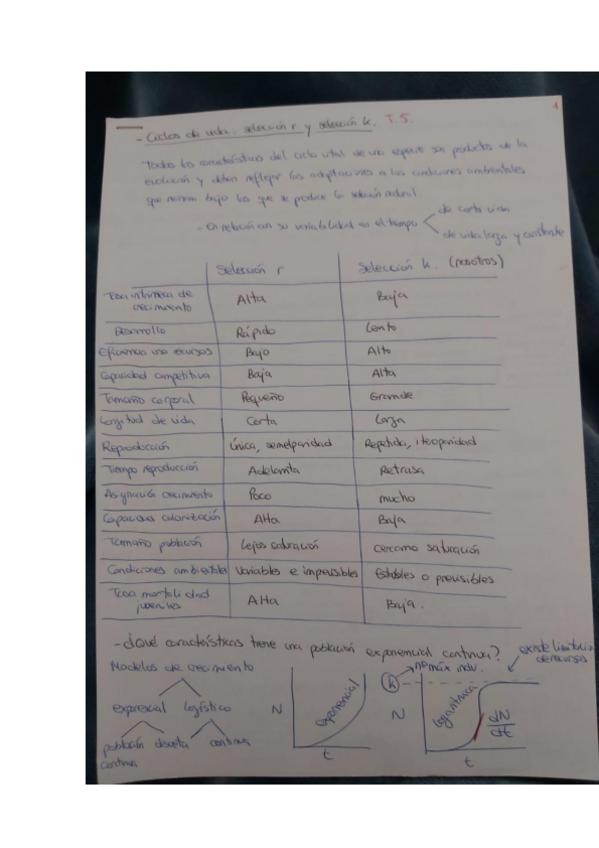 1
- Ciclos de vida: selección r y selección k. T.5.
Todas las características del ciclo vital de una especie son productos de la
evolución y deben reflejar las adaptaciones a las condiciones ambientales
que bajo las que se produce la selección natural
- En relación con su variabilidad en el tiempo
de corta vida
de vida larga y constante
Selección r Selección k. (nosotros)
Tasa intrínseca de
crecimiento Alta Baja
Desarrollo Rápido Lento
Eficiencia uso recursos Bajo Alto
Capacidad competitiva Baja Alta
Tamaño corporal Pequeño Grande
Longitud de vida Corta Larga
Reproducción Única, semelparidad Repetida, iteoparidad
Tiempo reproducción Adelanta Retrasa
Asignación crecimiento Poco mucho
Capacidad colonización Alta Baja
Tamaño población Lejos saturación cercano saturación
Condiciones ambientales Variables e imprevisibles Estables o previsibles
Tasa mortalidad
juveniles Alta Baja.
- ¿Qué características tiene una población exponencial continua?
Modelos de crecimiento
nº máx indv.
existe limitación
de recursos
k
exponencial logístico
población discreta continua
continua
N exponencial t
N logarítmica dN/dt t